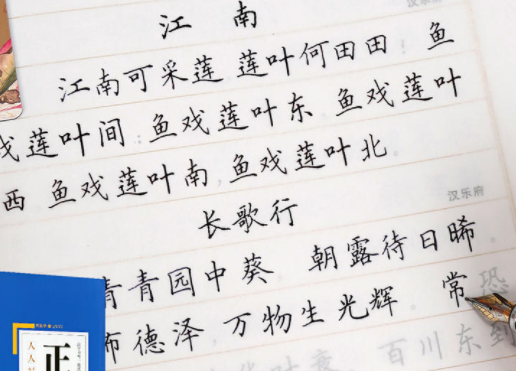 汉乐府
江南
江南可采莲 莲叶何田田 鱼
戏莲叶间 鱼戏莲叶东 鱼戏莲叶
西 鱼戏莲叶南 鱼戏莲叶北
汉乐府
长歌行
青青园中葵 朝露待日晞
布德泽 万物生光辉 常恐
百川东到
正
人人